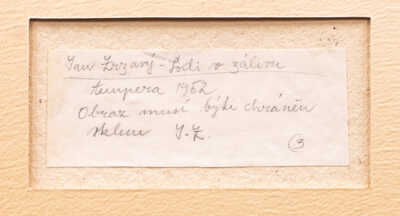 Jan Zrzavý - Lodi v zálivu
tempera 1962
Obraz musí být chráněn
sklem J.Z.
3